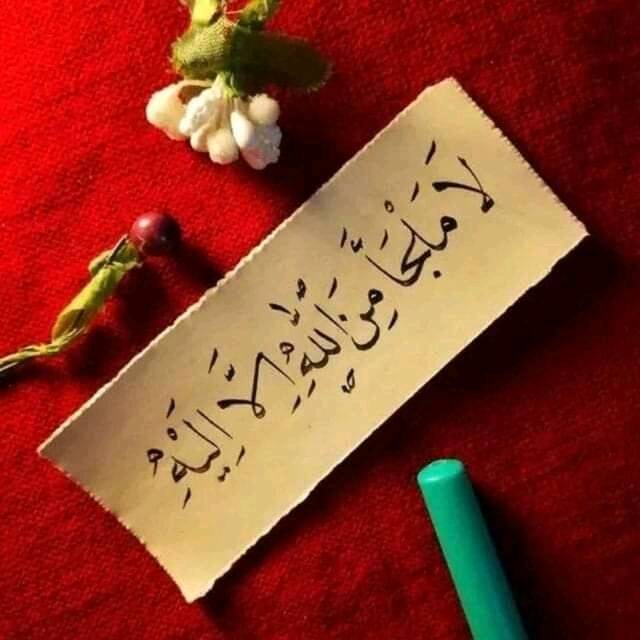 لَا مَلْجَأَ مِنَ اللّٰهِ اِلَّا اِلَيْهِ